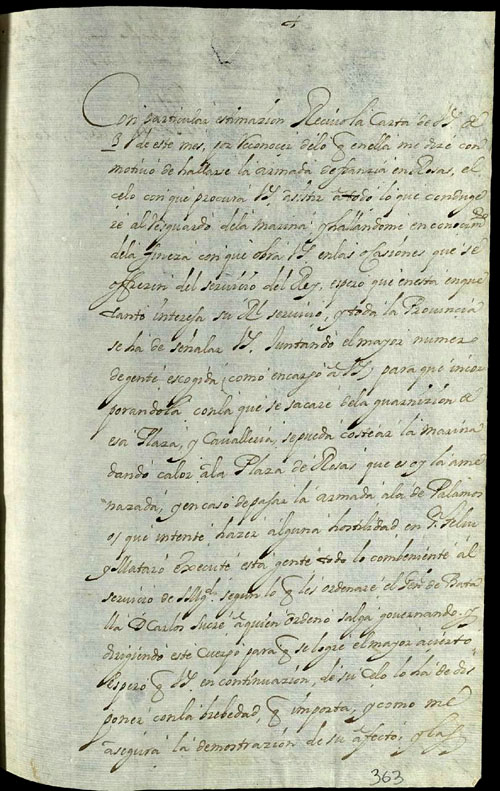 Con particular estimazion Recivo la Carta de V.S. de
31 de este mes, por Reconozer delo q en ella me dize con
motivo de hallarse la armada de franzia en Rosas, el
celo con que procura V.S. asistir a todo lo que conduge
re al Resguardo dela marina; y hallandome en conozim.to
dela fineza con que obra V.S. en las ocassiones que se
offrezen del servicio del Rey, espero que en esta en que
tanto interesa su Rl servicio, y toda la Provincia
se ha de señalar V.S. Juntando el mayor numero
de gente escogida, como encargo a V.S. para que incor
porandola con la que se sacare dela guarnizion de
esa Plaza, y Cavalleria, se pueda costear la marina
dando calor ala Plaza de Rosas que es oy la ame
nazada, y en caso de pasar la armada ala de Palamos
o que intente hazer alguna hostilidad en S. Feliu
y Mataró execute esta gente todo lo combeniente al
servicio de S.Mg.d segun lo q les ordenare el Ten.te de Bata
lla D Carlos Sucre a quien ordeno salga governando, y
dirigiendo este Cuerpo para q se logre el mayor acierto
Espero q V.S. en continuazion, de su celo lo ha de dis
poner con la brebedad, q importa, y como me
asegura la demostrazion de su afecto, y las
363